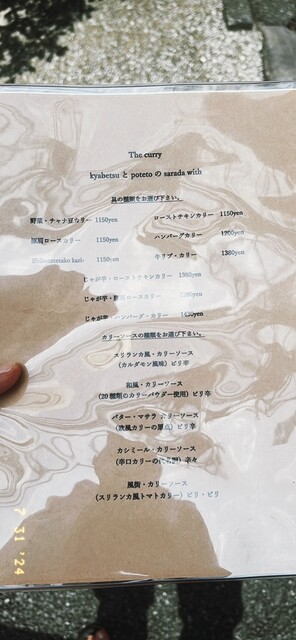 The curry
kyabetsu と poteto の sarada with
具の種類をお選び下さい。
野菜・チャナ豆カリー 1150yen
ローストチキンカリー 1150yen
豚肩ロースカリー 1150yen
ハンバーグカリー 1200yen
1150yen
牛リブ・カリー 1380yen
じゃが芋・ローストチキンカリー 1380yen
じゃが芋・豚肩ロースカリー
じゃが芋・ハンバーグ・カリー 1430yen
カリーソースの種類をお選び下さい。
スリランカ風・カリーソース
（カルダモン風味）ピリ辛
和風・カリーソース
（20種類のカリーパウダー使用）ピリ辛
バター・マサラ カリーソース
（欧風カリーの原点）ピリ辛
カシミール・カリーソース
（辛口カリーの代名詞）辛々
風街・カリーソース
（スリランカ風トマトカリー）ピリ・ピリ
7 31 '24